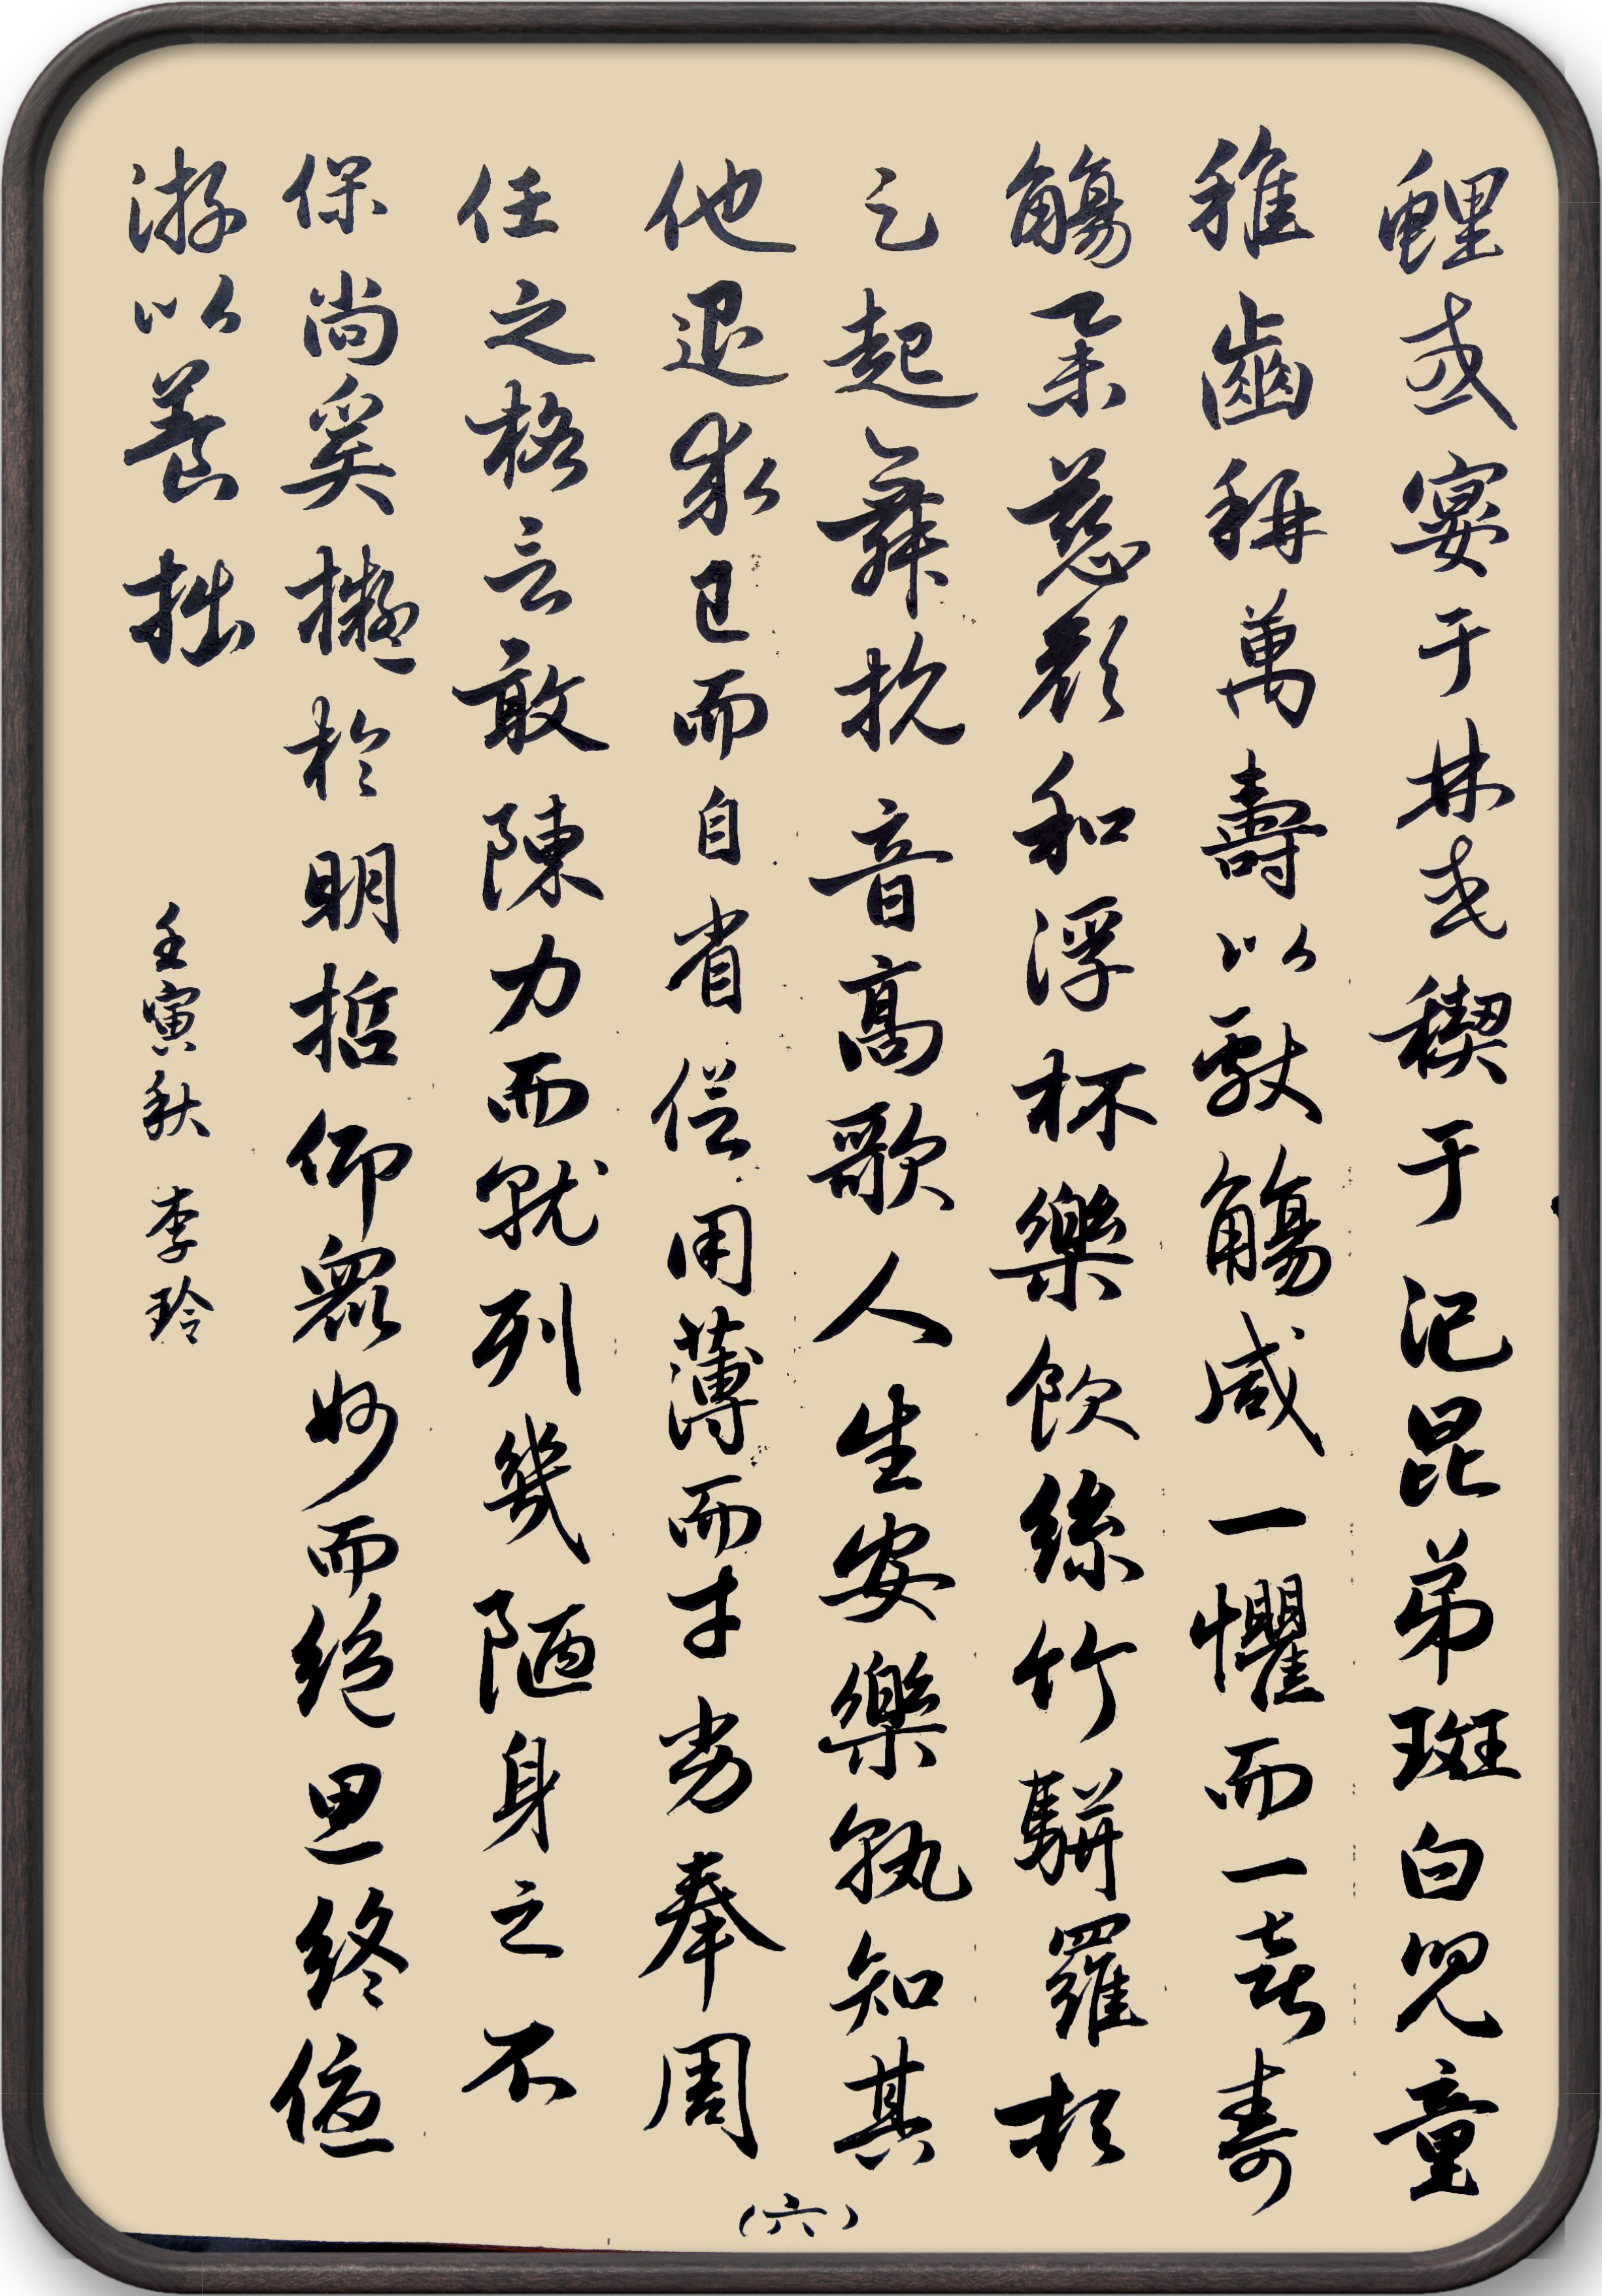 鯉或宴于林或禊于汜昆弟斑白兒童
稚齒稱萬壽以獻觴咸一懼而一喜壽
觴舉慈顏和浮杯樂飲絲竹駢羅頓
足起舞抗音高歌人生安樂孰知其
他退求己而自省信用薄而才劣奉周
任之格言敢陳力而就列幾陋身之不
保尚奚擬於明哲仰眾妙而絕思終優
游以養拙
壬寅秋 李玲
(六)